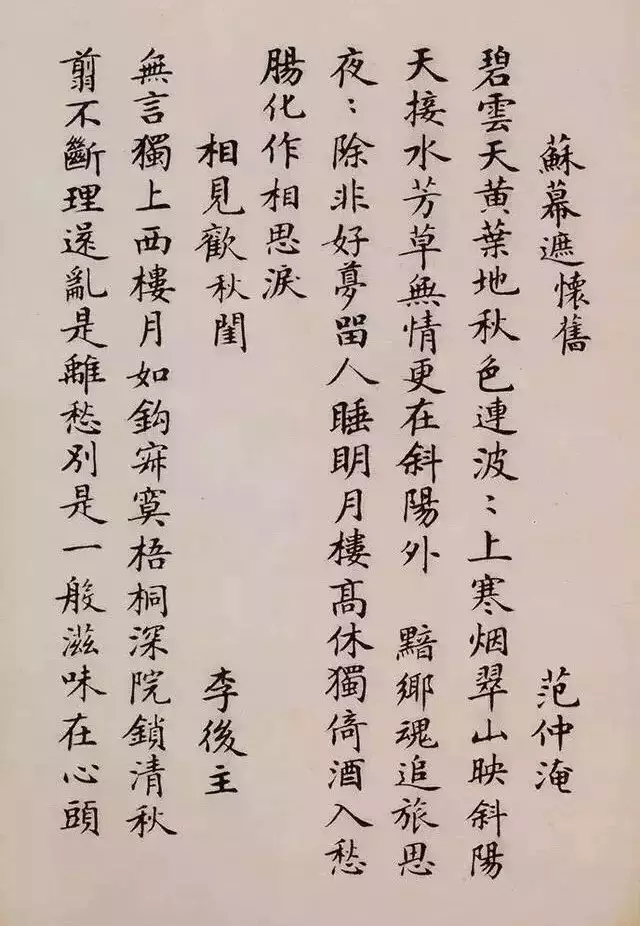 蘇幕遮懷舊 范仲淹
碧雲天黃葉地秋色連波:上寒烟翠山映斜陽
天接水芳草無情更在斜陽外 黯鄉魂追旅思
夜:除非好夢畱人睡明月樓高休獨倚酒入愁
腸化作相思淚
相見歡秋閨 李後主
無言獨上西樓月如鈎寂寞梧桐深院鎖清秋
翦不斷理還亂是離愁別是一般滋味在心頭